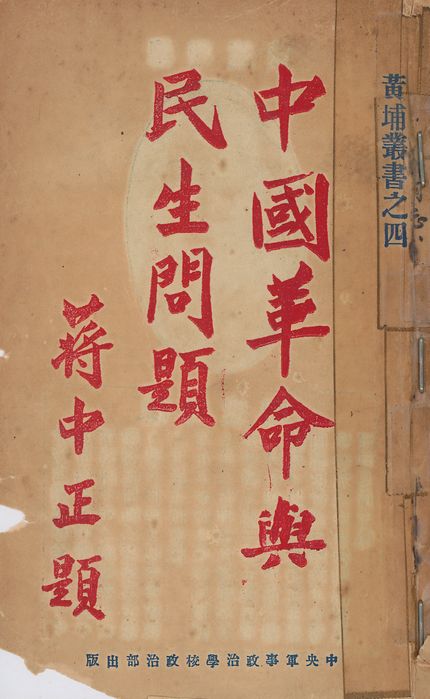 黃埔叢書之四
中國革命與
民生問題
蔣中正題
中央軍事政治學校政治部出版